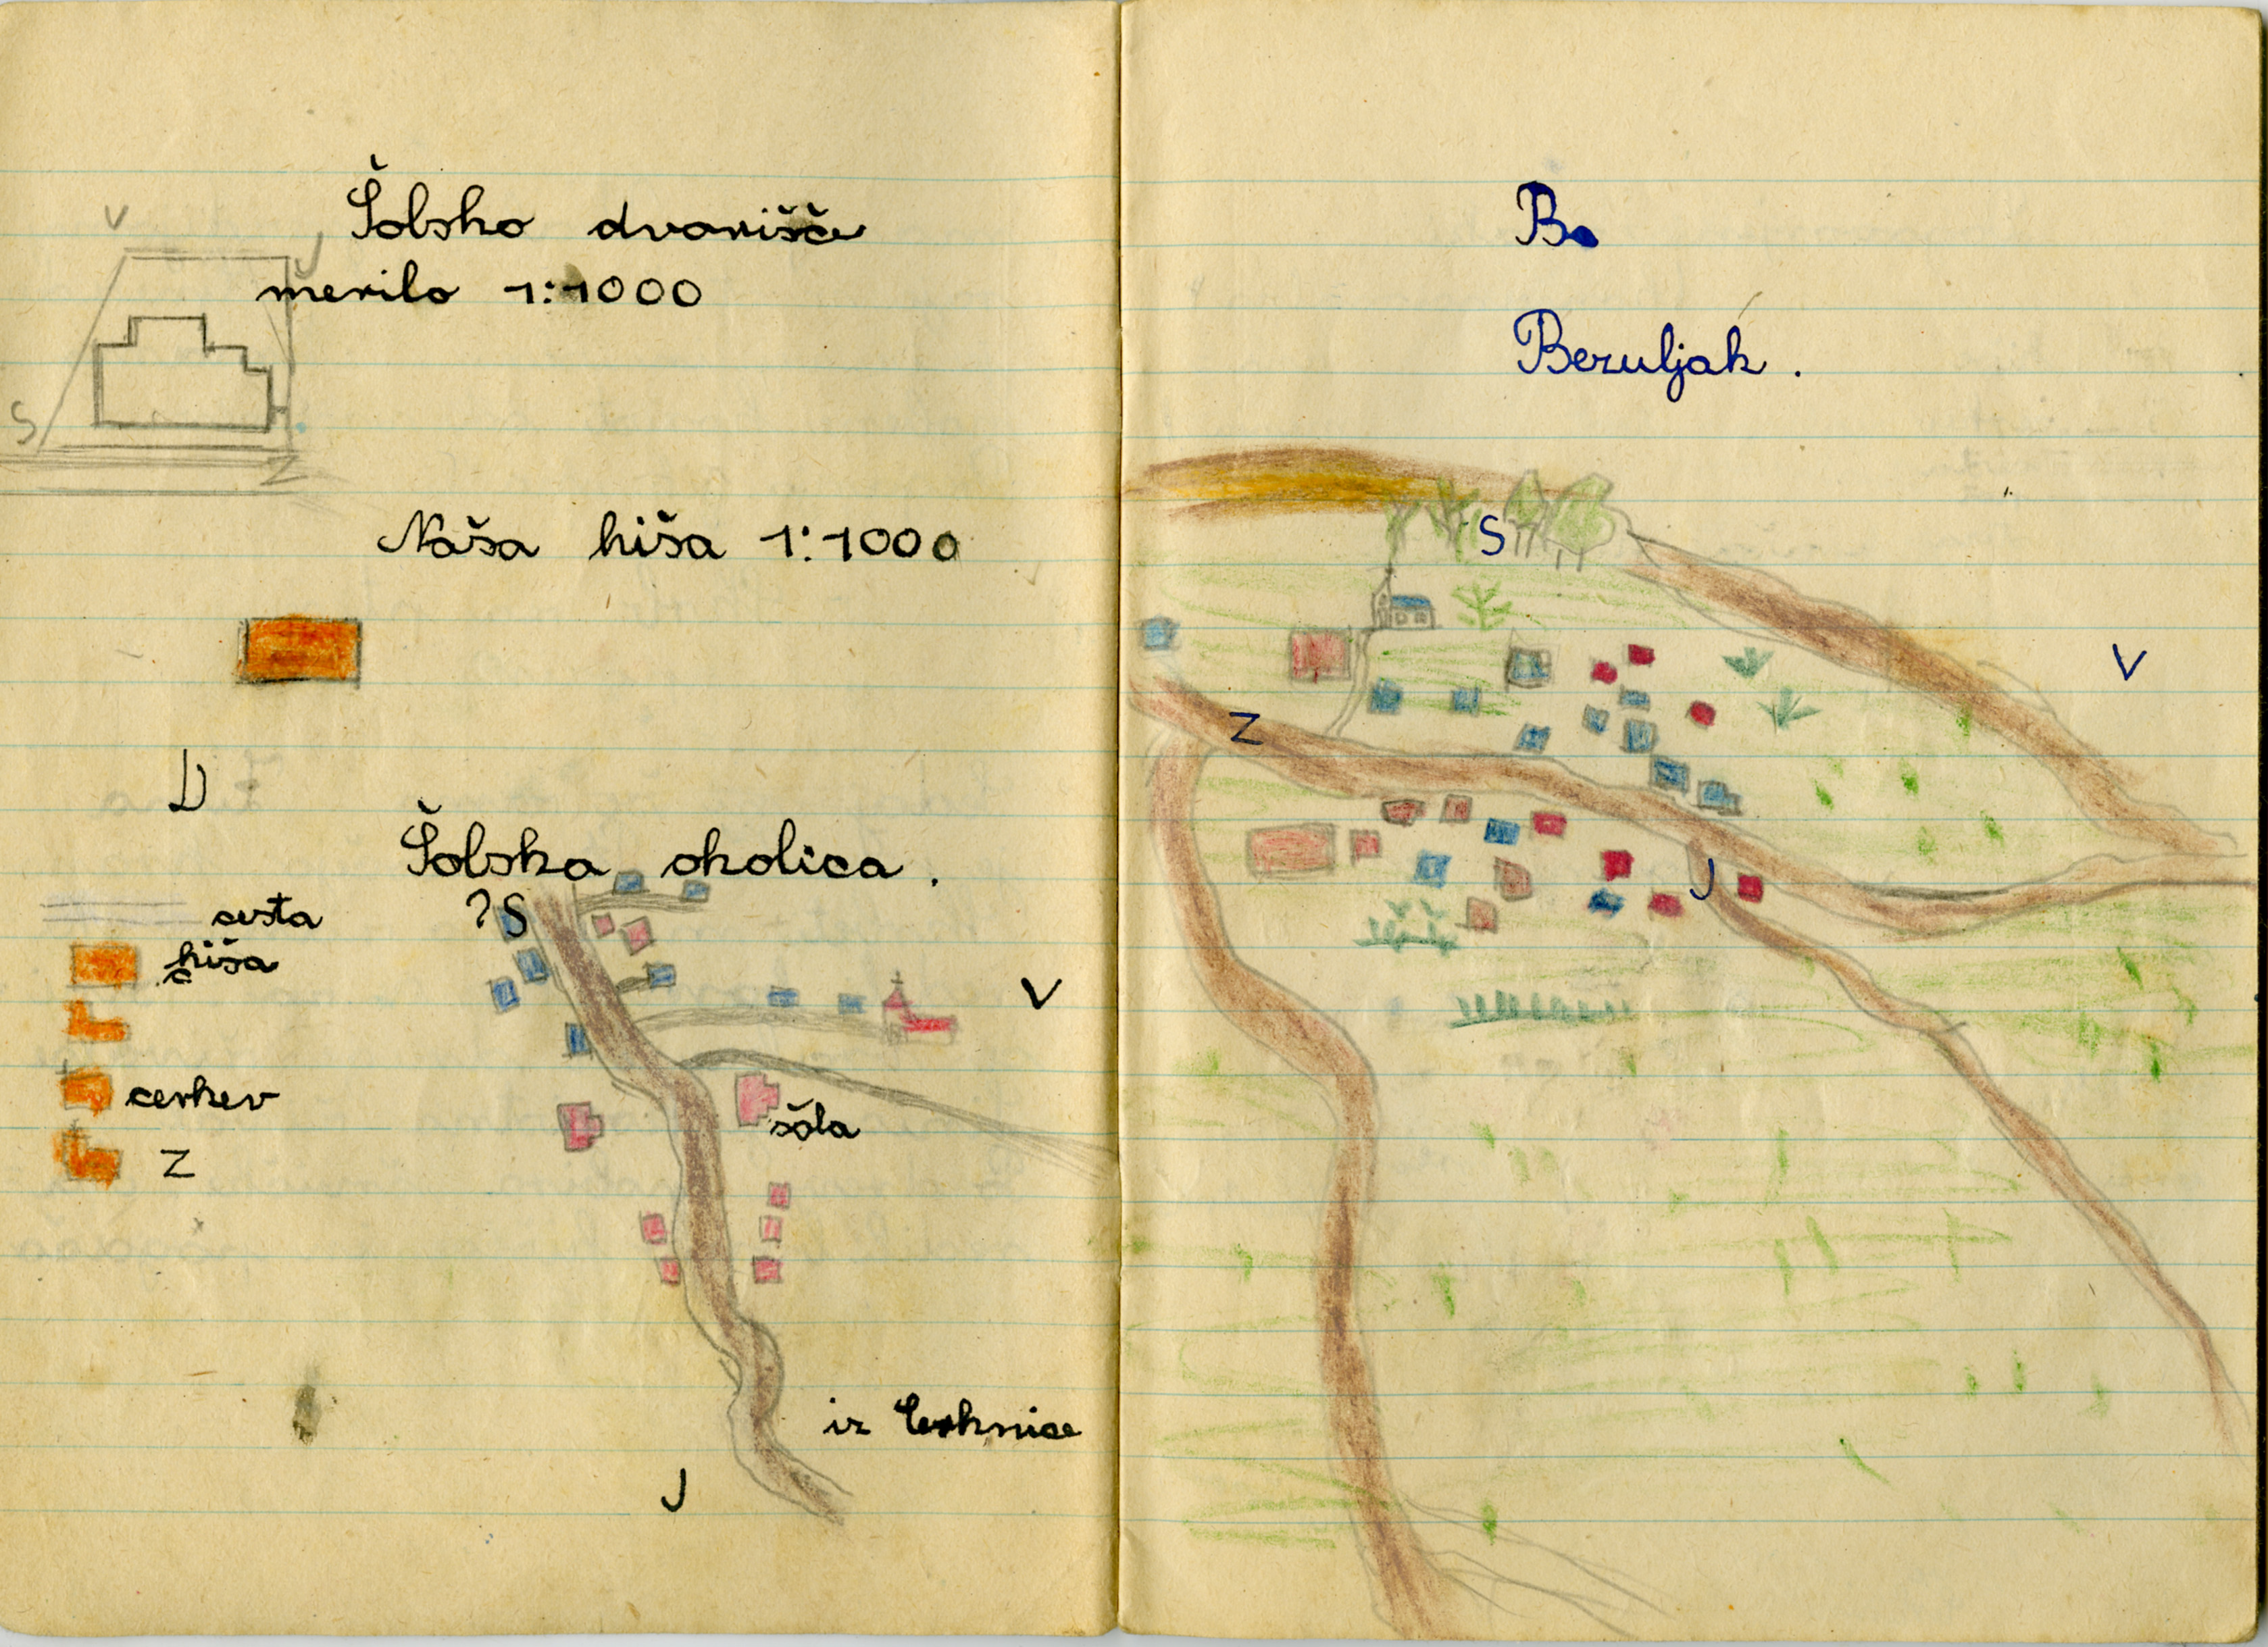 V
Šolsko dvorišče
J
merilo 1:1000
S
Z
Naša hiša 1:1000
D
Šolska okolica.
cesta
? S
hiša
V
cerkev
šola
Z
iz Cerknice
J
Bo
Bezuljak.
S
V
Z
J